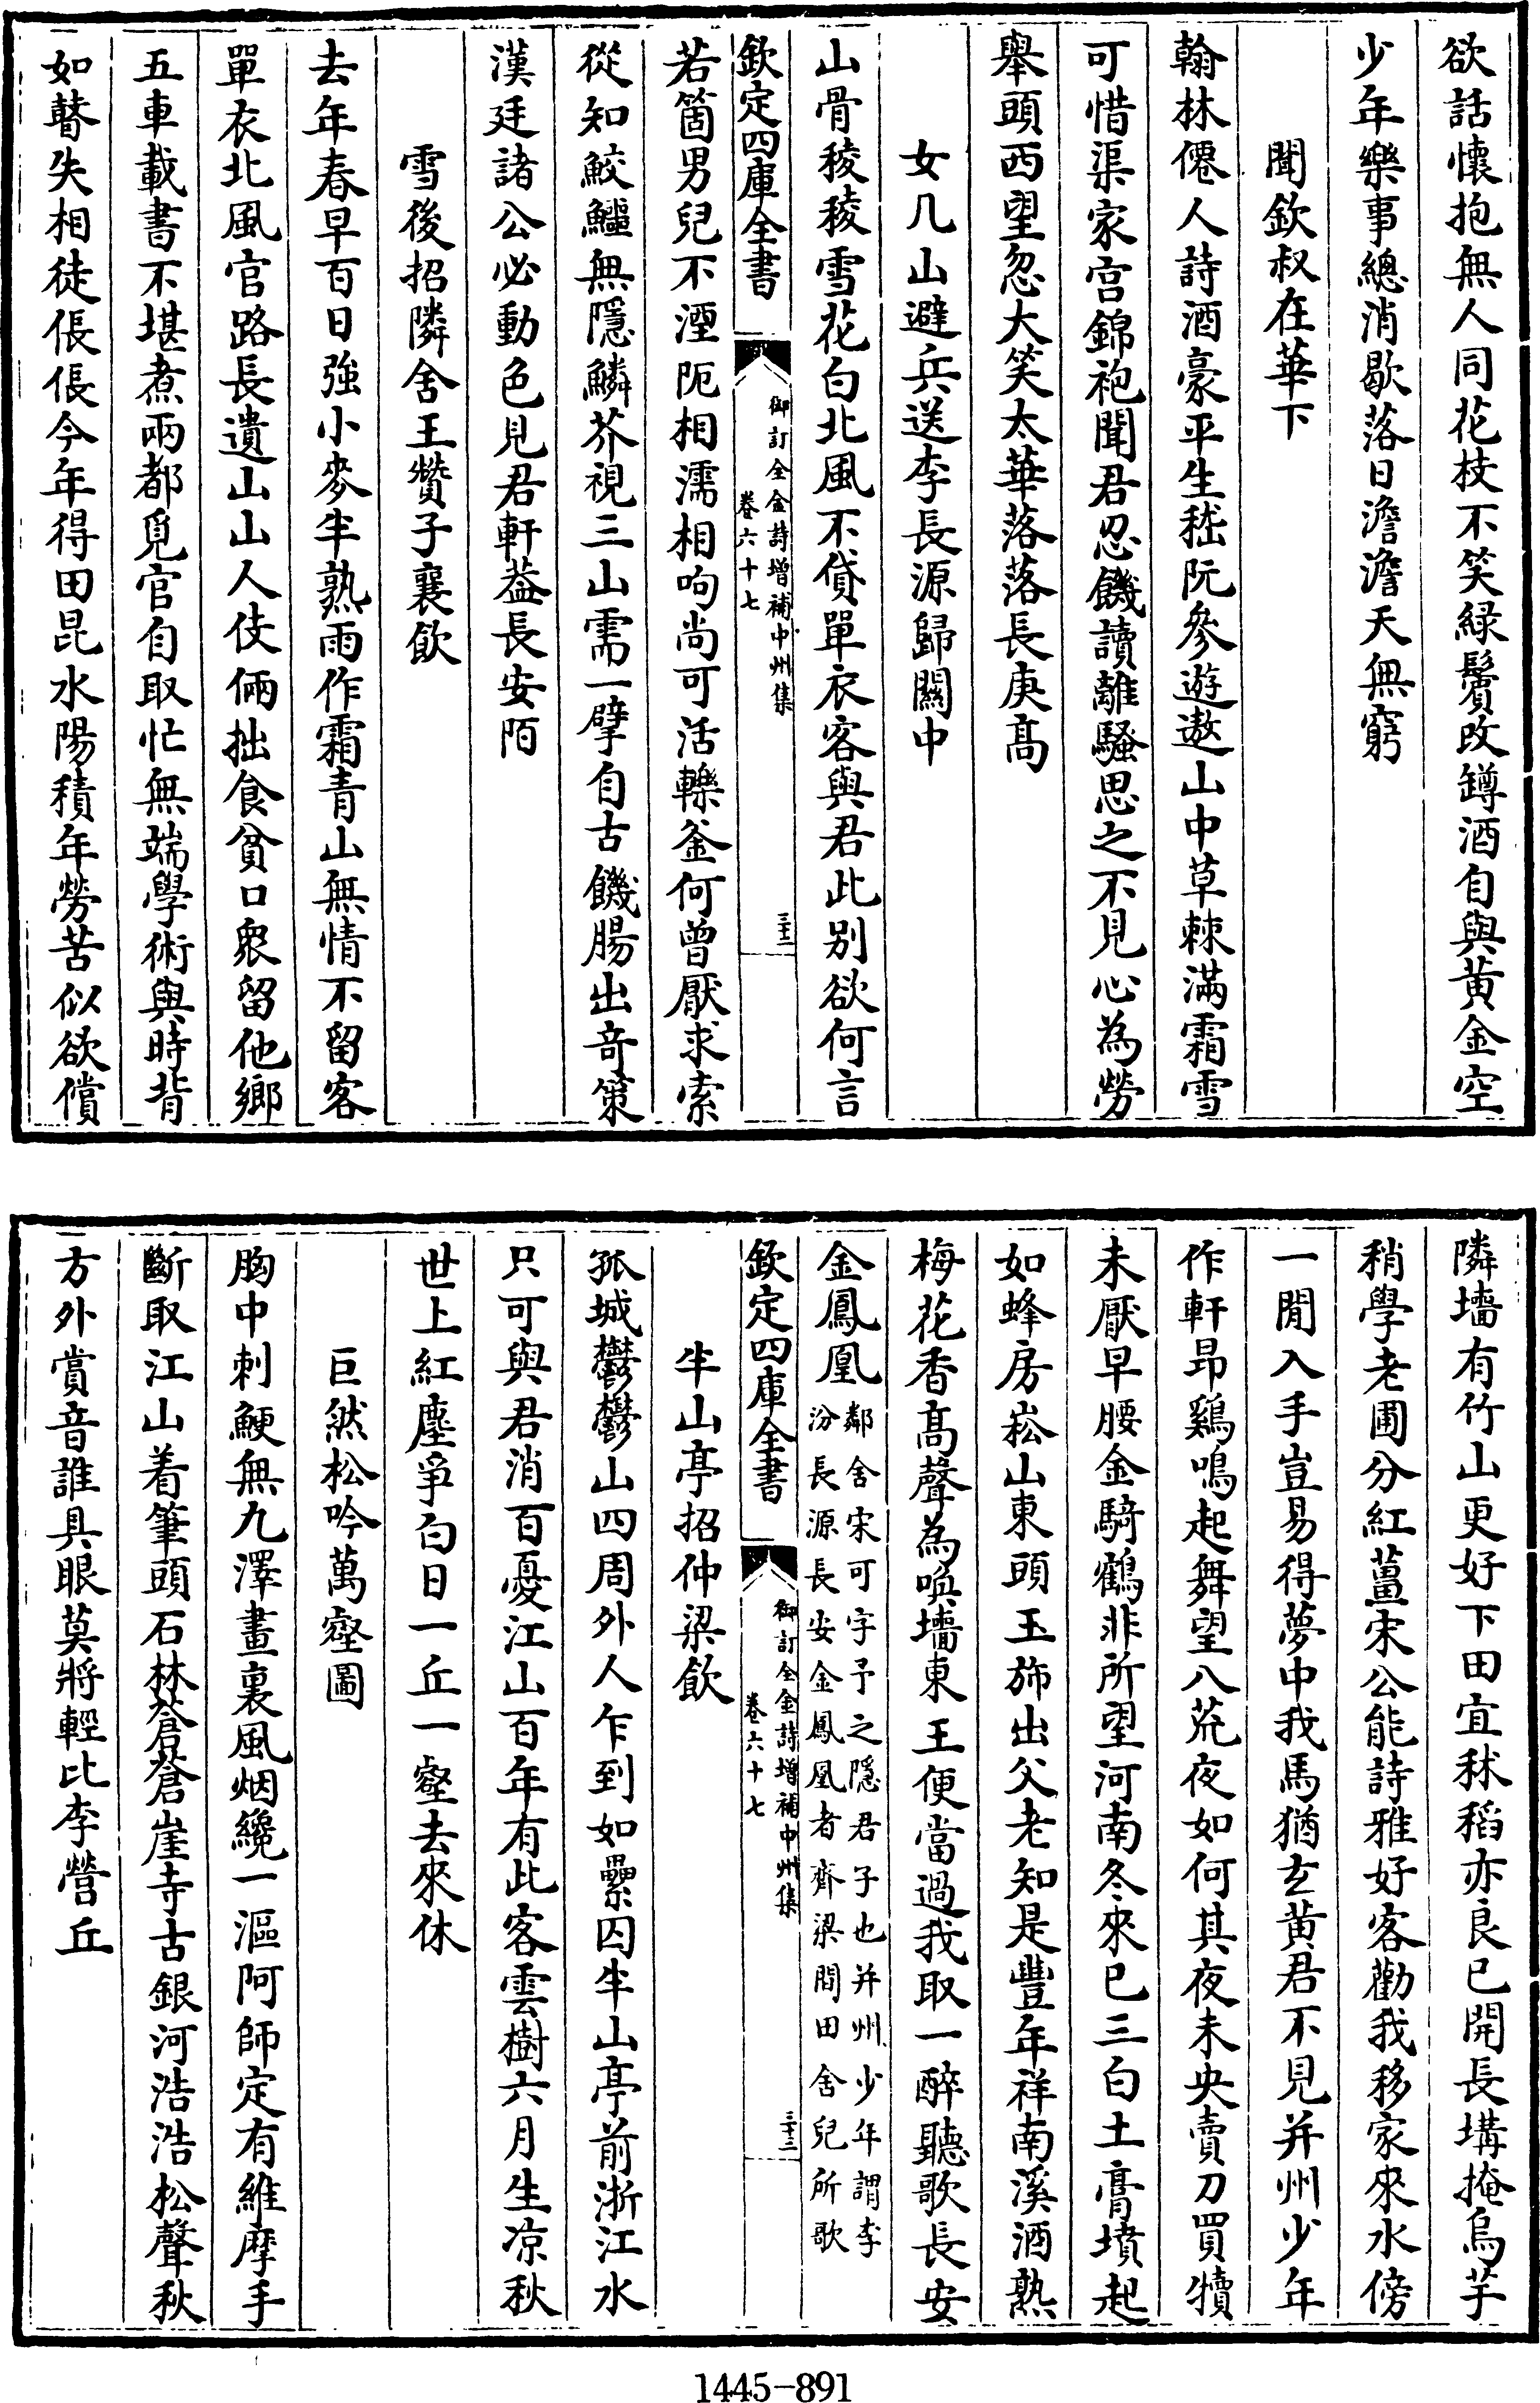 欲話懷抱無人同花枝不笑緑鬢改罇酒自與黄金空
少年樂事總消歇落日澹澹天無窮
聞欽叔在華下
翰林僊人詩酒豪平生嵇阮參遊遨山中草棘滿霜雪
可惜渠家宫錦袍聞君忍饑讀離騷思之不見心為勞
舉頭西望忽大笑太華落落長庚髙
女几山避兵送李長源歸關中
山骨稜稜雪花白北風不貸單衣客與君此别欲何言
欽定四庫全書
御訂全金詩增補中州集
卷六十七
三十二
若箇男兒不湮阨相濡相呴尚可活轢釜何曾厭求索
從知鮫鱷無隱鱗芥視三山需一擘自古饑腸出竒策
漢廷諸公必動色見君軒葢長安陌
雪後招隣舍王贊子襄飲
去年春早百日強小麥半熟雨作霜青山無情不留客
單衣北風官路長遺山山人伎倆拙食貧口衆留他鄉
五車載書不堪煮兩都覓官自取忙無端學術與時背
如瞽失相徒倀倀今年得田昆水陽積年勞苦似欲償
隣墻有竹山更好下田宜秫稻亦良已開長塂掩烏芋
稍學老圃分紅薑宋公能詩雅好客勸我移家來水傍
一閒入手豈易得夢中我馬猶𤣥黄君不見并州少年
作軒昂鷄鳴起舞望八荒夜如何其夜未央賣刀買犢
未厭早腰金騎鶴非所望河南冬來已三白土膏墳起
如蜂房崧山東頭玉斾出父老知是豐年祥南溪酒熟
梅花香髙聲為喚墻東王便當過我取一醉聽歌長安
金鳳凰鄰舍宋可字予之隱君子也并州少年謂李
汾長源長安金鳳凰者齊梁間田舍兒所歌
欽定四庫全書
御訂全金詩增補中州集
卷六十七
三十三
半山亭招仲梁飲
孤城鬱鬱山四周外人乍到如纍囚半山亭前浙江水
只可與君消百憂江山百年有此客雲樹六月生凉秋
世上紅塵爭白日一丘一壑去來休
巨然松吟萬壑圖
胸中刺鯁無九澤畫裏風烟纔一漚阿師定有維摩手
斷取江山着筆頭石林蒼蒼崖寺古銀河浩浩松聲秋
方外賞音誰具眼莫將輕比李營丘
1445-891